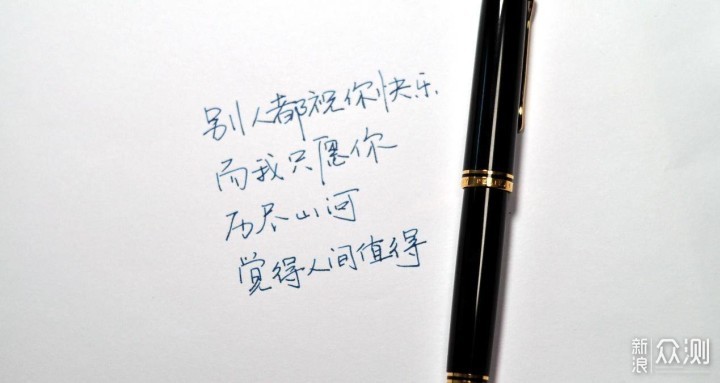 别人都祝你快乐
而我只愿你
历尽山河
觉得人间值得
新浪
众测